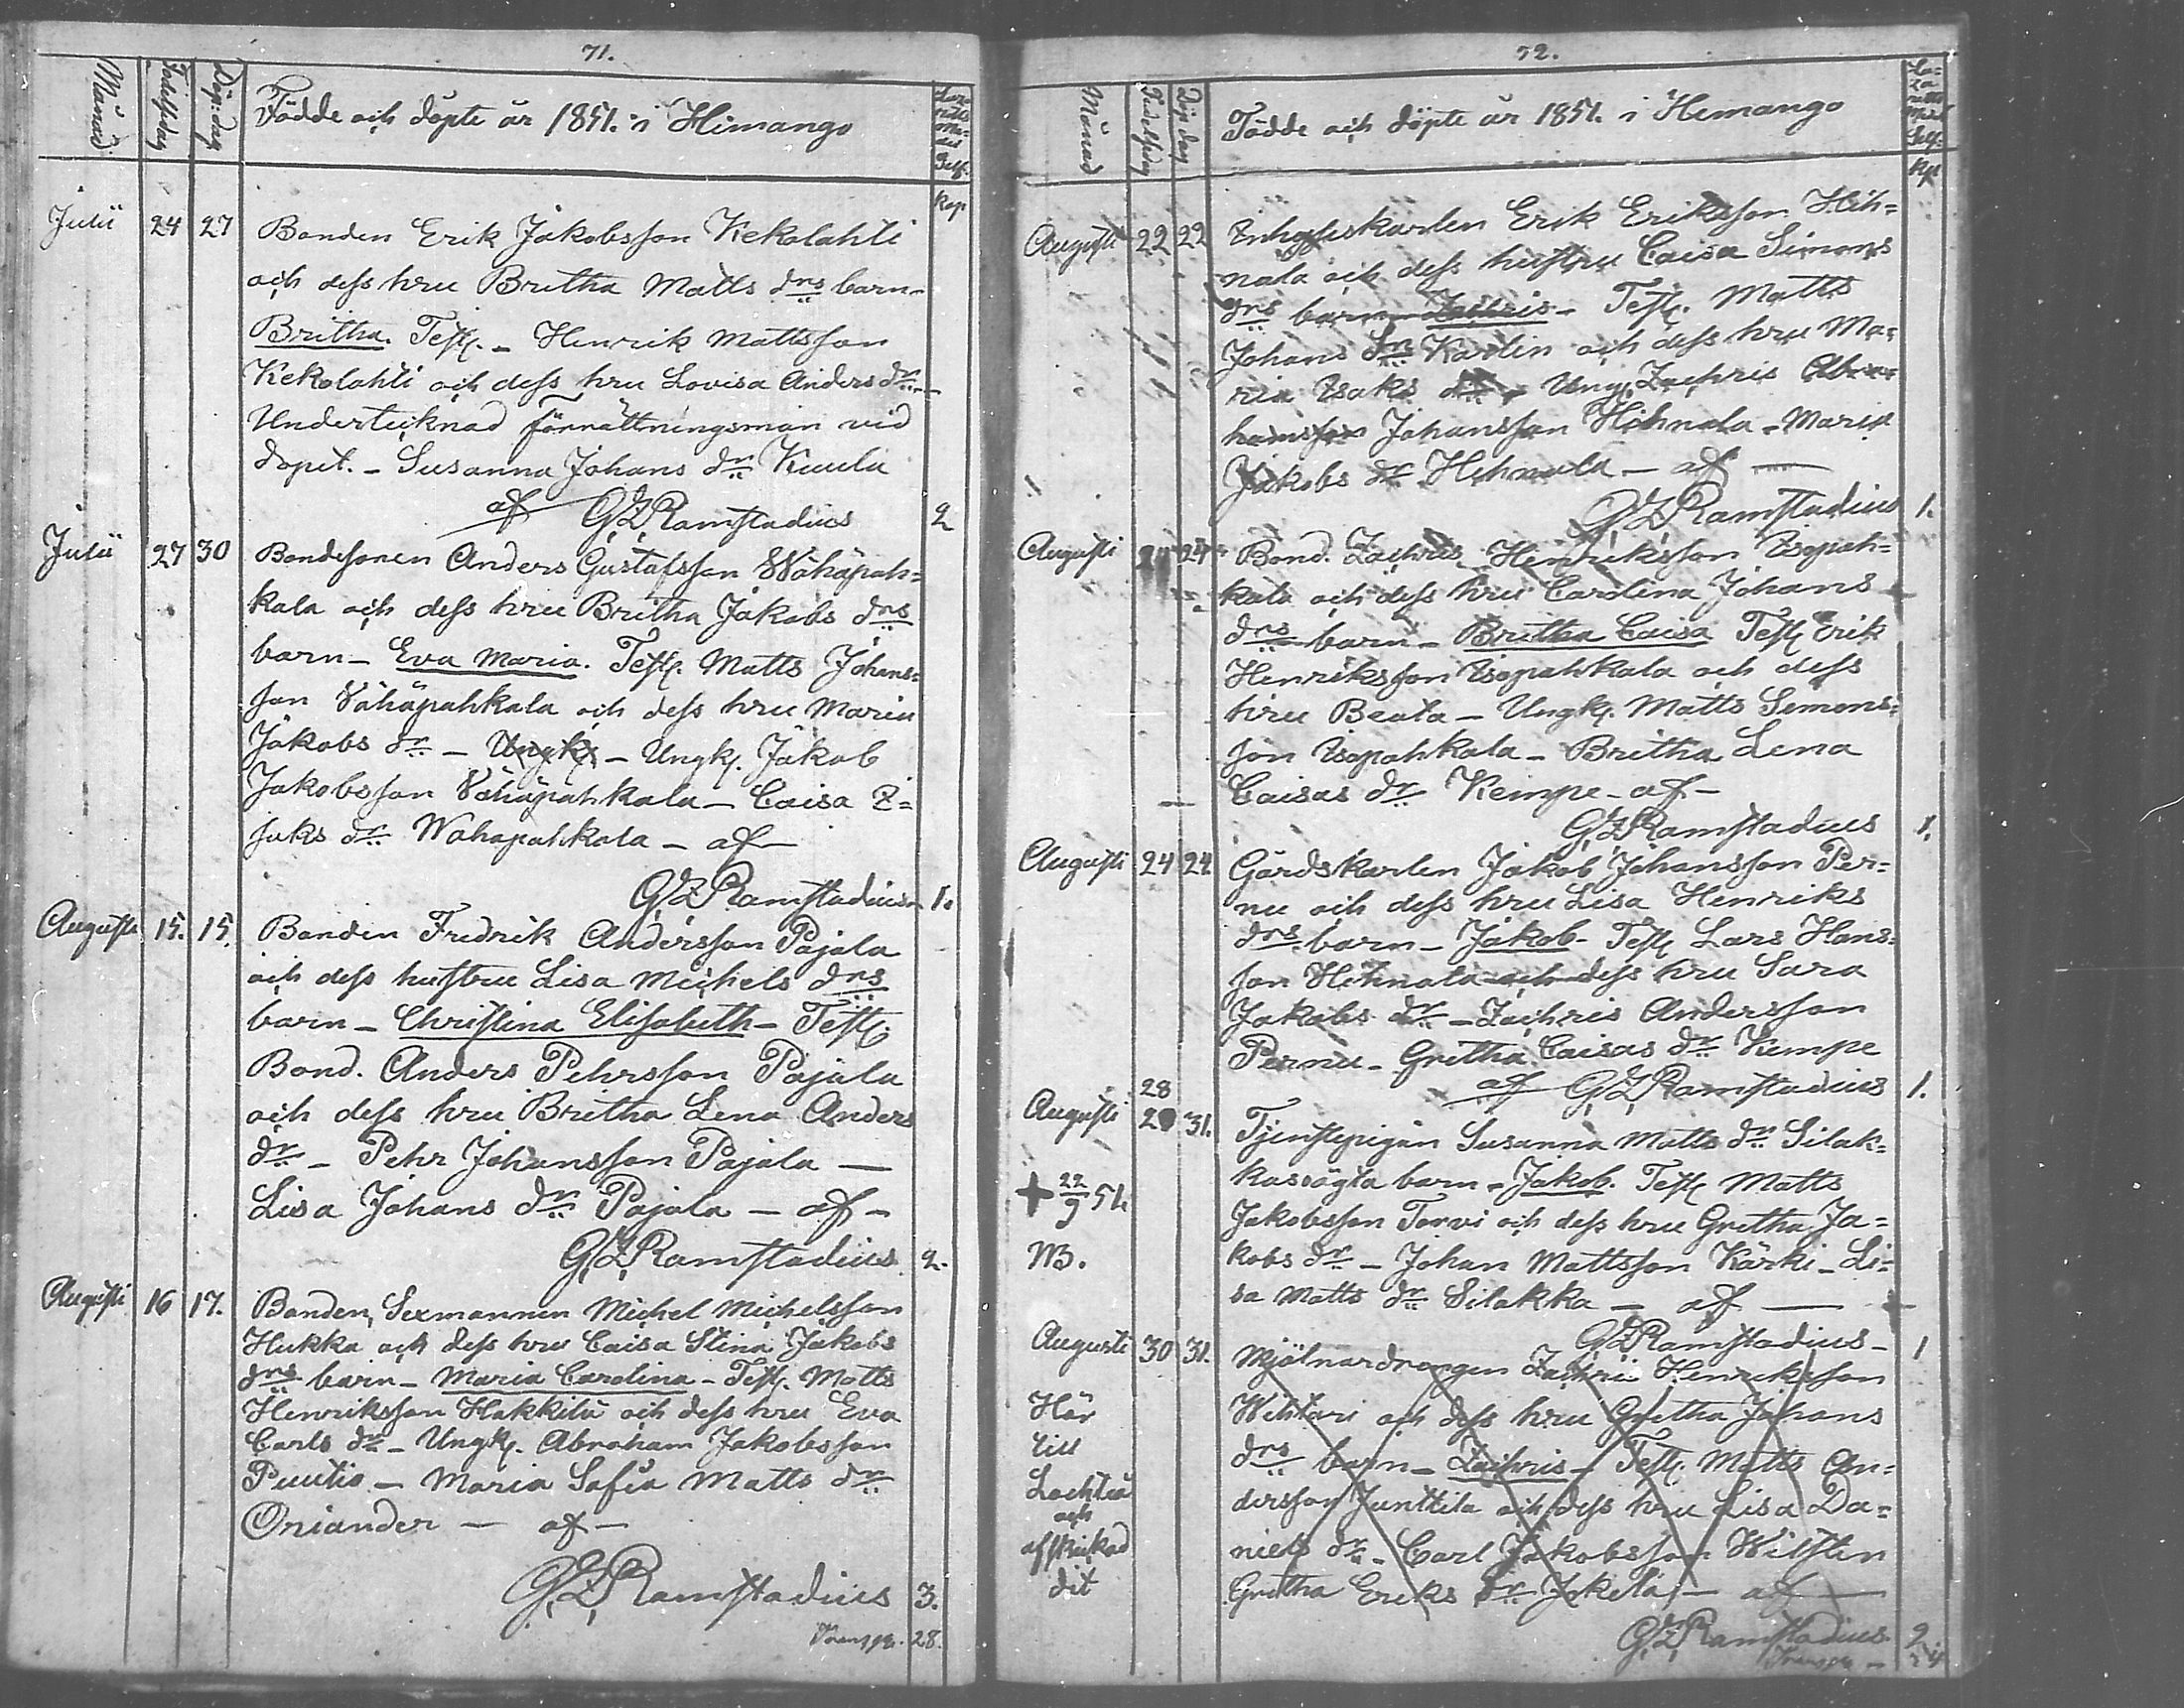 71.
Månad Födelsedag Döp: dag Födde och döpte år 1851. i Himango
Kop
Julii 24 27 Bonden Erik Jakobsson Kekolahti
och dess hru Britha Matts drs barn -
Britha. Test. - Henrik Mattsson
Kekolahti och dess hru Lovisa Anders dr -
Undertecknad förrättningsman vid
dopet. - Susanna Johans dr Kuula
af GZRamstadius 2
Julii 27 30 Bondesonen Anders Gustafsson Wähäpah=
kala och dess hru Britha Jakobs drs
barn - Eva Maria. Test. Matts Johans=
son Vähäpahkala och dess hru Maria
Jakobs dr - Ungk. - Ungk. Jakob
Jakobsson Vähäpahkala - Caisa I=
saks dr Wähäpahkala - af -
GZRamstadius 1.
Augusti 15. 15. Bonden Fredrik Andersson Pajala
och dess hustru Lisa Michels drs
barn - Christina Elisabeth - Test.
Bond. Anders Pehrsson Pajala
och dess hru Britha Lena Anders
dr - Pehr Johansson Pajala -
Lisa Johans dr Pajala - af -
GZRamstadius 2.
Augusti 16 17. Bonden, Sexmannen Michel Michelsson
Hukka och dess hru Caisa Stina Jakobs
drs barn - Maria Carolina - Test. Matts
Henriksson Hakkila och dess hru Eva
Carls dr - Ungk. Abraham Jakobsson
Puutio - Maria Sofia Matts dr
Oriander - af -
GZRamstadius 3.
Transp. 28.
72.
Månad Födelsedag Döp dag Födde och döpte år 1851. i Himango
Kp
Augusti 22 22 Inhyseskarlen Erik Eriksson Hih=
nala och dess hustru Caisa Simons
drs barn Zachris - Test. Matts
Johans sn Karlin och dess hru Ma=
ria Isaks dr - Ungk. Zachris Abra=
hamsson Johansson Hihnala - Maria
Jakobs dr Hihnala - af -
GZRamstadius 1.
Augusti 24 24 Bond. Zachris Henriksson Isopah=
kala och dess hru Carolina Johans
drs barn - Britha Caisa Test. Erik
Henriksson Isopahkala och dess
hru Beata - Ungk. Matts Simons=
son Isopahkala - Britha Lena
Caisas dr Kempe - af -
GZRamstadius 1.
Augusti 24 24 Gårdskarlen Jakob Johansson Per=
nu och dess hru Lisa Henriks
drs barn - Jakob - Test. Lars Hans=
son Hihnala och dess hru Sara
Jakobs dr - Zachris Andersson
Pernu - Gretha Caisas dr Kempe
af GZRamstadius 1.
28
Augusti 29 31. Tjenstepigan Susanna Matts dr Silak=
kas oägta barn - Jakob. Test. Matts
+ 22/9 51. Jakobsson Torvi och dess hru Gretha Ja=
NB. kobs dr - Johan Mattsson Kärki - Li=
sa Matts dr Silakka - af -
GZRamstadius - 1
Augusti 30 31. Mjölnardrängen Zachris Henriksson
Hör Wihtari och dess hru Gretha Johans
till drs barn - Zachris - Test. Matts An=
Lochteå dersson Junttila och dess hru Lisa Da=
och
afskickad niels dr - Carl Jakobsson Wilsten
dit Gretha Eriks dr Jokela - af -
GZRamstadius 2
Transp. -